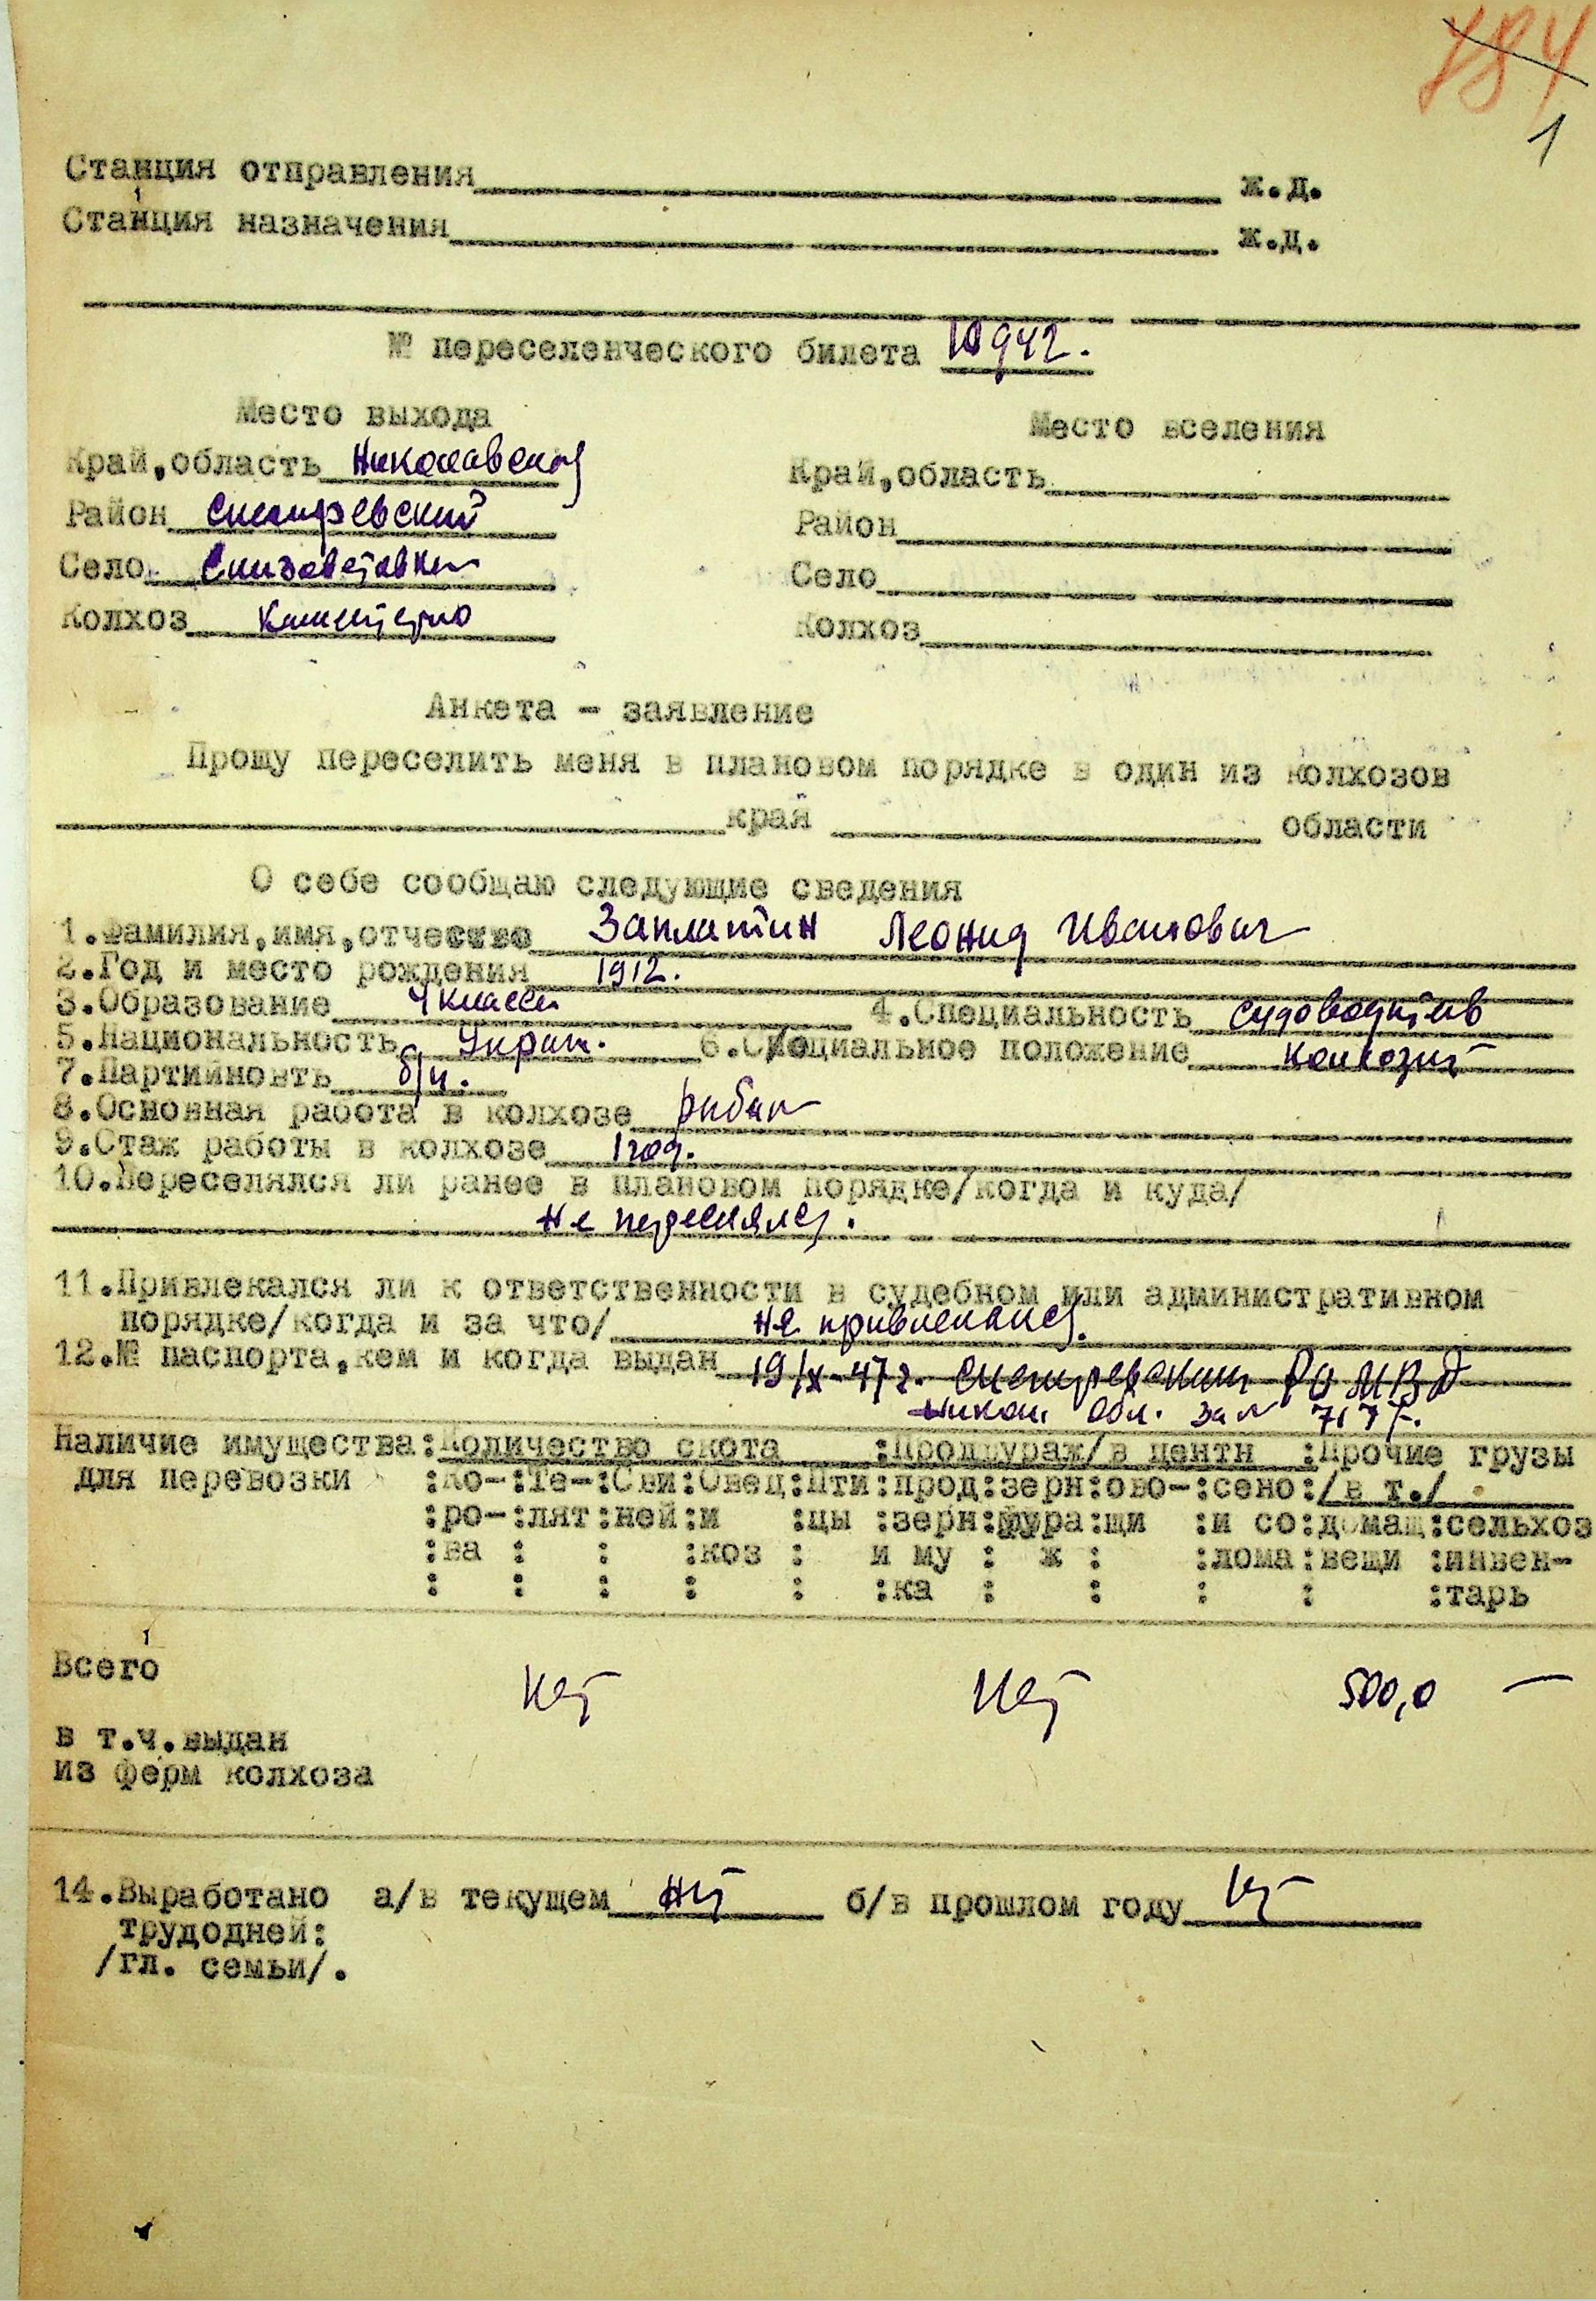 784
1
Станция отправления ж.д.
Станция назначения ж.д.
№ переселенческого билета 10942.
Место выхода Место вселения
Край,область Николаевская Край,область
Район Снегиревский Район
Село Елизаветовка Село
Колхоз Колхоз
Анкета - заявление
Прошу переселить меня в плановом порядке в один из колхозов
край области
О себе сообщаю следующие сведения
1.Фамилия,имя,отчество Заплатин Леонид Иванович
2.Год и место рождения 1912.
3.Образование 4 класса 4.Специальность
5.Национальность Украин. 6.Социальное положение колхозник
7.Партийновть б/п.
8.Основная работа в колхозе рибак
9.Стаж работы в колхозе 1 год.
10.Переселялся ли ранее в плановом порядке/когда и куда/
Не переселялся.
11.Привлекался ли к ответственности в судебном или административном
порядке/когда и за что/ не привлекался.
12.№ паспорта,кем и когда выдан 19/X-47г. Снегиревским РО МВД
Никол. обл. за №
Наличие имущества:Количество скота :Продфураж/в центн :Прочие грузы
для перевозки :Ко-:Те-:Сви:Овец:Пти:прод:зерн:ово-:сено:/в т./
:ро-:лят:ней:и :цы :зерн:фура:щи :и со:домаш:сельхоз
:ва : : :коз : и му : ж : :лома:вещи :инвен-
: : : : : :ка : : : : :тарь
Всего Нет Нет 500,0 —
в т.ч.выдан
из ферм колхоза
14.Выработано а/в текущем нет б/в прошлом году нет
трудодней:
/гл. семьи/.